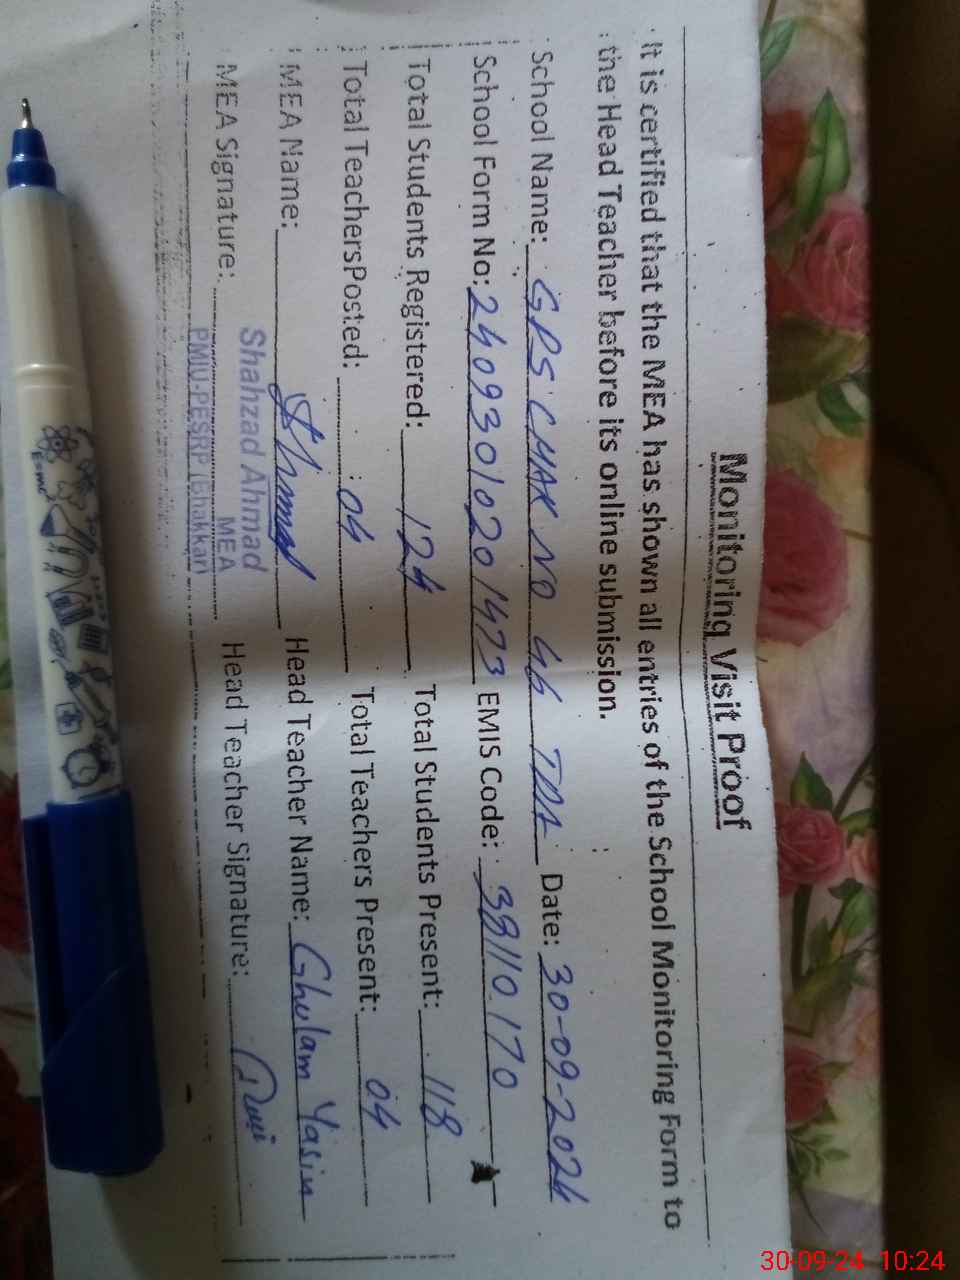 Monitoring Visit Proof
It is certified that the MEA has shown all entries of the School Monitoring Form to
the Head Teacher before its online submission.
School Name: GPS CHAK NO 46 TDA Date: 30-09-2024
School Form No: 24093010201473 EMIS Code: 38110170
Total Students Registered: 124 Total Students Present: 118
Total TeachersPosted: 04 Total Teachers Present: 04
MEA Name: Head Teacher Name: Ghulam Yasin
MEA Signature: Head Teacher Signature:
Shahzad Ahmad
MEA
PMIU-PESRP (Bhakkar)
E=mc²
30-09-24 10:24